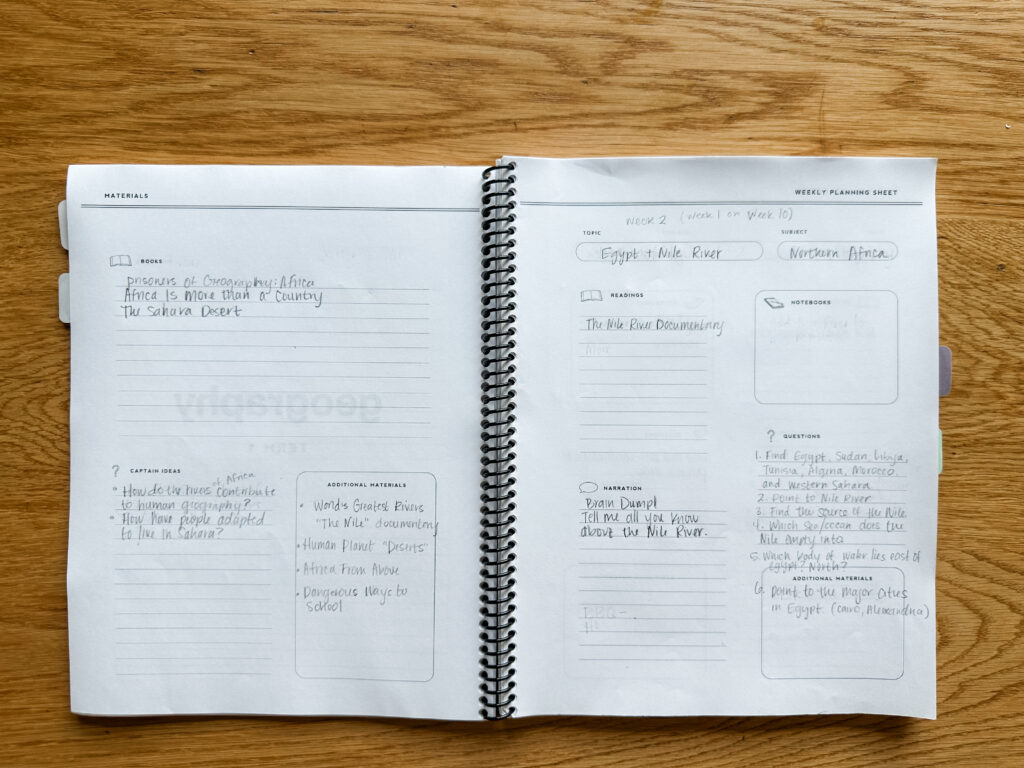 MATERIALS
BOOKS
prisoners of Geography: Africa
Africa Is More than a Country
The Sahara Desert
geography
TERM 1
? CAPTAIN IDEAS
• How do the rivers of Africa contribute
to human geography?
• How have people adapted
to live in Sahara?
ADDITIONAL MATERIALS
• World's Greatest Rivers
"The Nile" documentary
• Human Planet "Deserts"
• Africa From Above
• Dangerous Ways to
School
WEEKLY PLANNING SHEET
Week 2 (Week 1 on Week 10)
TOPIC
Egypt + Nile River
SUBJECT
Northern Africa
READINGS
The Nile River Documentary
NARRATION
Brain Dump!
Tell me all you know
about the Nile River.
NOTEBOOKS
? QUESTIONS
1. Find Egypt, Sudan, Libya,
Tunisia, Algeria, Morocco,
and Western Sahara
2. Point to Nile River
3. Find the source of the Nile
4. Which sea/ocean does the
Nile empty into
5. Which body of water lies east of
Egypt? North?
ADDITIONAL MATERIALS
6. Point to the major cities
in Egypt (Cairo, Alexandria)